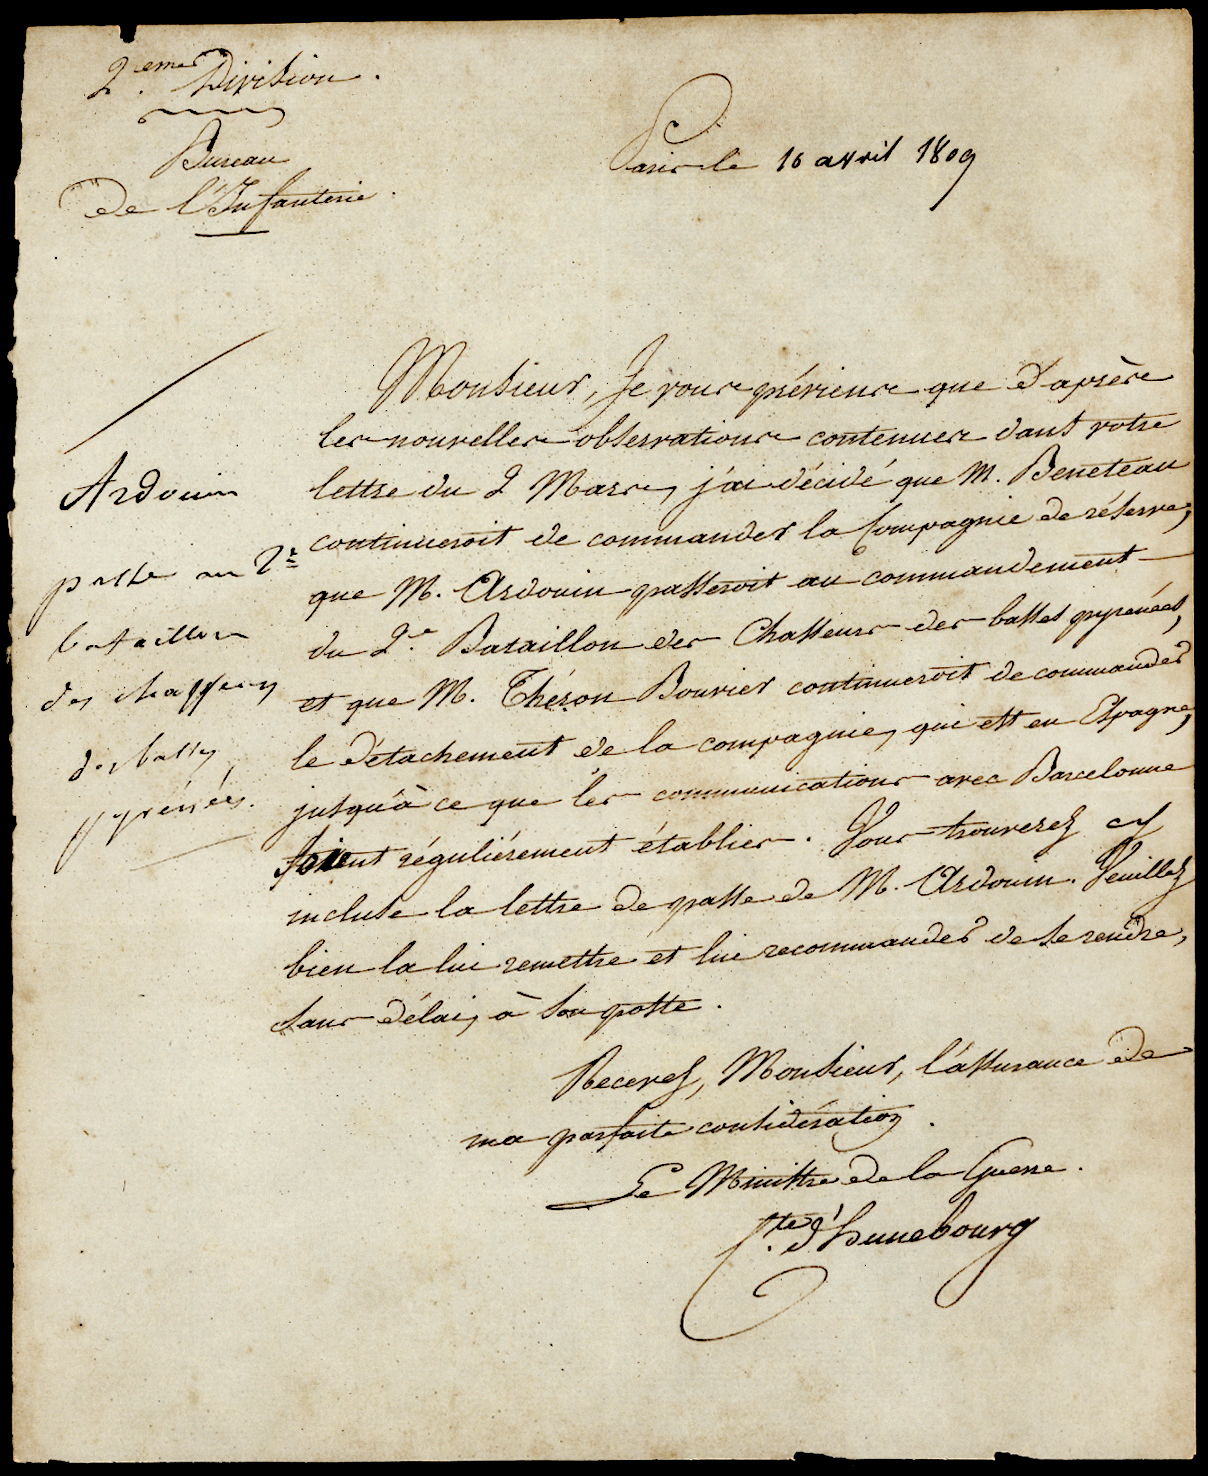 2.eme Division.
Bureau
De l'Infanterie.
Paris le 16 avril 1809
Monsieur, Je vous préviens que d'après
les nouvelles observations contenues dans votre
lettre du 2 Mars, j'ai décidé que M. Beneteau
continueroit de commander la Compagnie de réserve,
que M. Ardouin passeroit au commandement
du 2.e Bataillon des Chasseurs des basses pyrenées,
et que M. Théron Bouvier continueroit de commander
le détachement de la compagnie, qui est en Espagne,
jusqu'à ce que les communications avec Barcelonne
soient réguliérement établies. Vous trouverez cy
incluse la lettre de passe de M. Ardouin. Veuillez
bien la lui remettre et lui recommander de se rendre,
sans délai, à son poste.
Recevez, Monsieur, l'assurance de
ma parfaite considération.
Le Ministre de la Guerre.
C.te d'hunebourg
Ardouin
passe au 2e
bataillon
des chasseurs
des basses
pyrénées.